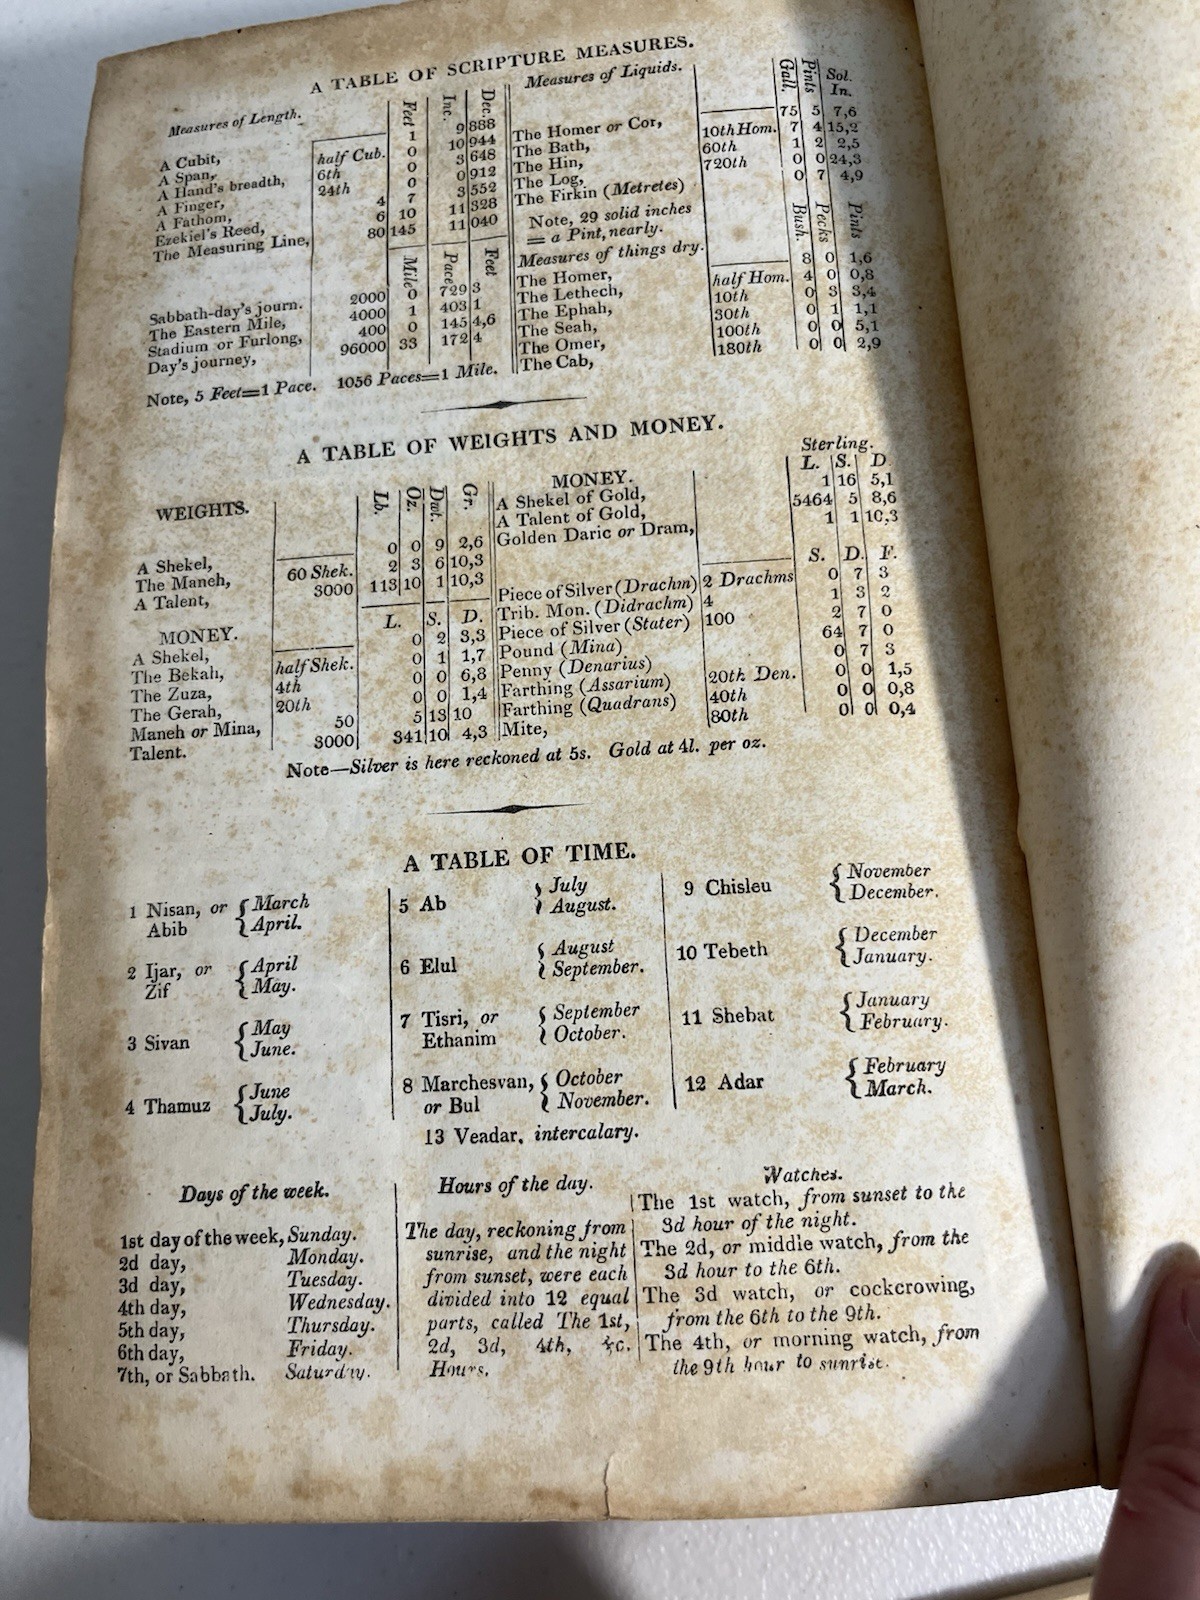 A TABLE OF SCRIPTURE MEASURES.
Measures of Length.
Feet Inc. Dec.
A Cubit, 1 9 888
A Span, half Cub. 0 10 944
A Hand's breadth, 6th 0 3 648
A Finger, 24th 0 0 912
A Fathom, 4 7 3 552
Ezekiel's Reed, 6 10 11 328
The Measuring Line, 80 145 11 040
Mile Pace Feet
Sabbath-day's journ. 2000 0 729 3
The Eastern Mile, 4000 1 403 1
Stadium or Furlong, 400 0 145 4,6
Day's journey, 96000 33 172 4
Note, 5 Feet=1 Pace. 1056 Paces=1 Mile.
Measures of Liquids.
Gall. Pints Sol. In.
The Homer or Cor, 75 5 7,6
The Bath, 10th Hom. 7 4 15,2
The Hin, 60th 1 2 2,5
The Log, 720th 0 0 24,3
The Firkin (Metretes) 0 7 4,9
Note, 29 solid inches
= a Pint, nearly.
Measures of things dry.
Bush. Pecks Pints
The Homer, 8 0 1,6
The Lethech, half Hom. 4 0 0,8
The Ephah, 10th 0 3 3,4
The Seah, 30th 0 1 1,1
The Omer, 100th 0 0 5,1
The Cab, 180th 0 0 2,9
A TABLE OF WEIGHTS AND MONEY.
WEIGHTS.
Lb. Oz. Dwt. Gr.
A Shekel, 0 0 9 2,6
The Maneh, 60 Shek. 2 3 6 10,3
A Talent, 3000 113 10 1 10,3
MONEY.
L. S. D.
A Shekel, 0 2 3,3
The Bekah, half Shek. 0 1 1,7
The Zuza, 4th 0 0 6,8
The Gerah, 20th 0 0 1,4
Maneh or Mina, 50 5 13 10
Talent. 3000 341 10 4,3
MONEY.
Sterling.
L. S. D.
A Shekel of Gold, 1 16 5,1
A Talent of Gold, 5464 5 8,6
Golden Daric or Dram, 1 1 10,3
S. D. F.
Piece of Silver (Drachm) 0 7 3
Trib. Mon. (Didrachm) 2 Drachms 1 3 2
Piece of Silver (Stater) 4 2 7 0
Pound (Mina) 100 64 7 0
Penny (Denarius) 0 7 3
Farthing (Assarium) 20th Den. 0 0 1,5
Farthing (Quadrans) 40th 0 0 0,8
Mite, 80th 0 0 0,4
Note—Silver is here reckoned at 5s. Gold at 4l. per oz.
A TABLE OF TIME.
1 Nisan, or Abib { March April.
2 Ijar, or Zif { April May.
3 Sivan { May June.
4 Thamuz { June July.
5 Ab { July August.
6 Elul { August September.
7 Tisri, or Ethanim { September October.
8 Marchesvan, or Bul { October November.
9 Chisleu { November December.
10 Tebeth { December January.
11 Shebat { January February.
12 Adar { February March.
13 Veadar, intercalary.
Days of the week.
1st day of the week, Sunday.
2d day, Monday.
3d day, Tuesday.
4th day, Wednesday.
5th day, Thursday.
6th day, Friday.
7th, or Sabbath. Saturday.
Hours of the day.
The day, reckoning from
sunrise, and the night
from sunset, were each
divided into 12 equal
parts, called The 1st,
2d, 3d, 4th, &c.
Hours.
Watches.
The 1st watch, from sunset to the
3d hour of the night.
The 2d, or middle watch, from the
3d hour to the 6th.
The 3d watch, or cockcrowing,
from the 6th to the 9th.
The 4th, or morning watch, from
the 9th hour to sunrise.